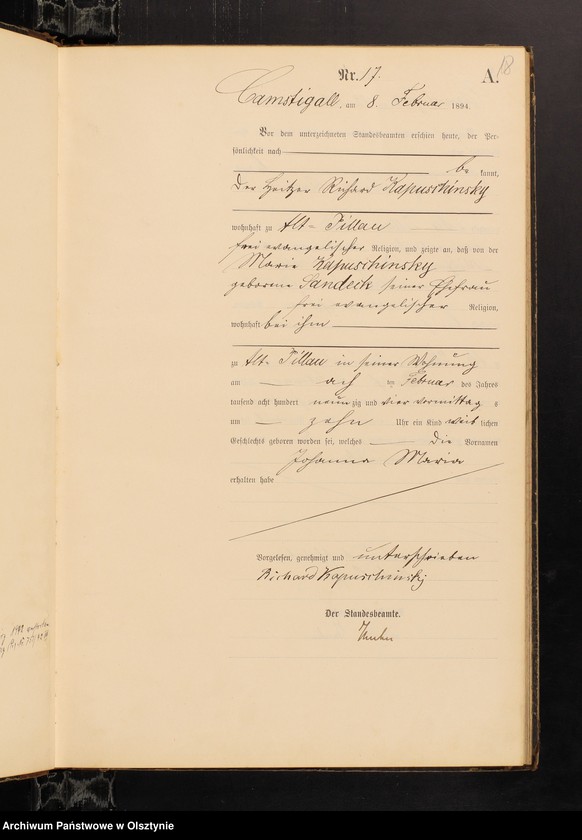 18
Nr. 17.
A.
Camstigall, am 8. Februar 1894.
Vor dem unterzeichneten Standesbeamten erschien heute, der Per-
sönlichkeit nach
be kannt,
der Heitzer Richard Kapuschinsky
wohnhaft zu Alt-Pillau
frei evangelischer Religion, und zeigte an, daß von der
Marie Kapuschinsky
geborene Sandeck seiner Ehefrau
frei evangelischer Religion,
wohnhaft bei ihm
zu Alt-Pillau in seiner Wohnung
am ach ten Februar des Jahres
tausend acht hundert neunzig und vier vormittags
um zehn Uhr ein Kind weib lichen
Geschlechts geboren worden sei, welches die Vornamen
Johanna Maria
erhalten habe
Vorgelesen, genehmigt und unterschrieben
Richard Kapuschinsky
Der Standesbeamte.
Archiwum Państwowe w Olsztynie